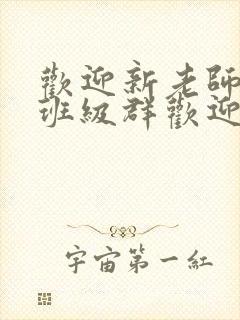 歡迎新老師
班級群歡迎
宇宙第一紅